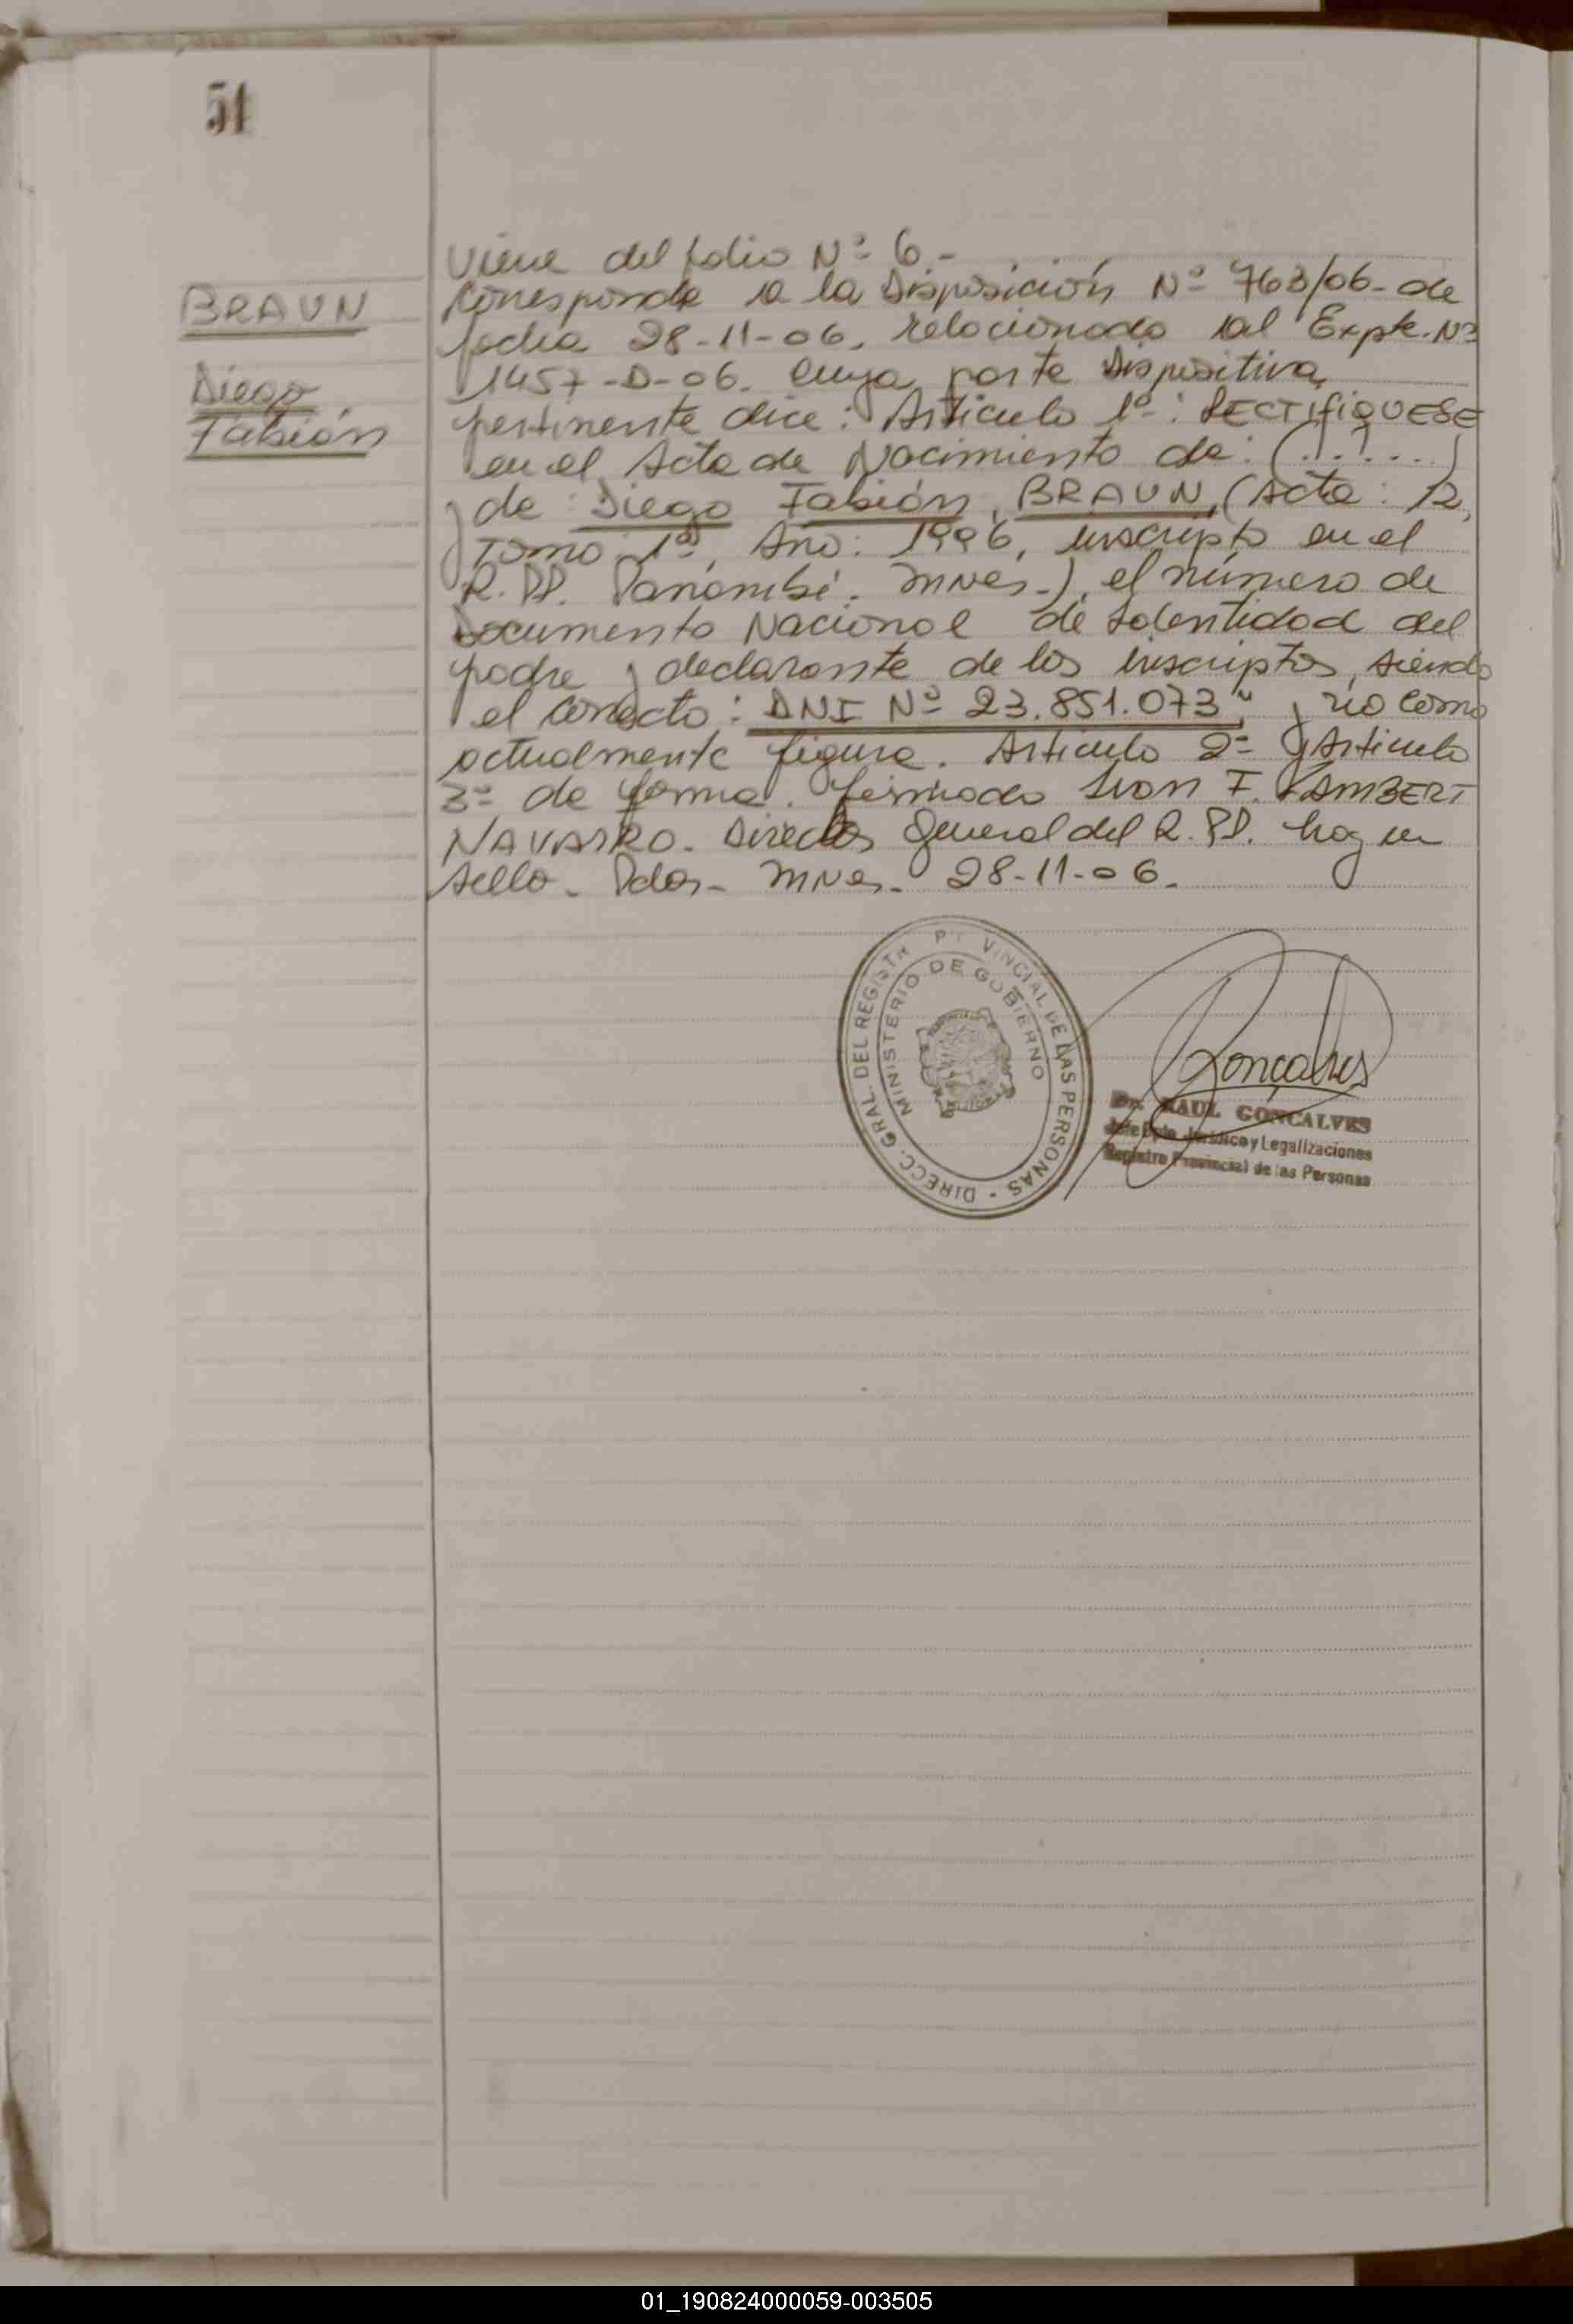 51
BRAUN
Diego
Fabián
Viene del folio Nº 6.-
Corresponde a la Disposición Nº 763/06- de
fecha 28-11-06, relacionado al Expte. Nº
1457-D-06. Cuya parte dispositiva
pertinente dice: Artículo 1º: RECTIFIQUESE
en el Acta de Nacimiento de: (.......)
y de: Diego Fabián BRAUN, (Acta: 12,
Tomo: 1º, Año: 1996, inscripto en el
R. PP. Panambí. Mnes.), el número de
Documento Nacional de Identidad del
padre y declarante de los inscriptos, siendo
el correcto: DNI Nº 23.851.073" y no como
actualmente figura. Artículo 2º y Artículo
3º de forma. Firmado Ivan F. LAMBERT
NAVARRO. Director General del R. PP. hay un
sello. Pdas- Mnes- 28-11-06.
DIRECC. GRAL. DEL REGISTR PR VINCIAL DE LAS PERSONAS
MINISTERIO DE GOBIERNO
Gonçalves
Dr. RAUL GONCALVES
Jefe Dpto. Jurídico y Legalizaciones
Registro Provincial de las Personas
01_190824000059-003505